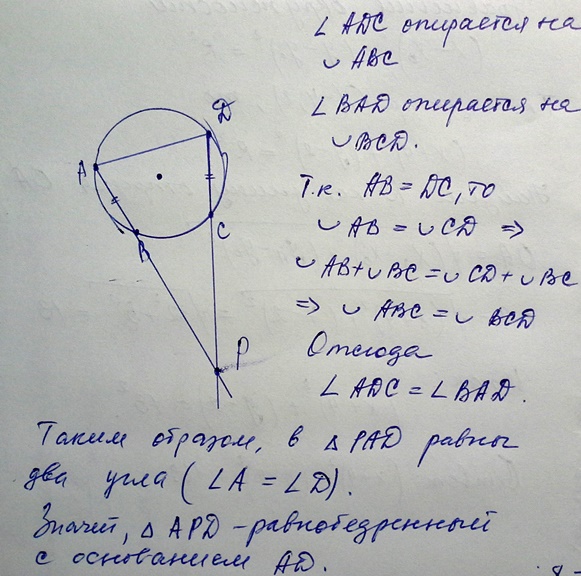 ∠ ADC опирается на
∪ ABC
∠ BAD опирается на
∪ BCD.
Т.к. AB = DC, то
∪ AB = ∪ CD ⇒
∪ AB + ∪ BC = ∪ CD + ∪ BC
⇒ ∪ ABC = ∪ BCD
Отсюда
∠ ADC = ∠ BAD.
D
A
C
B
P
Таким образом, в △ PAD равны
два угла (∠A = ∠D).
Значит, △ APD - равнобедренный
с основанием AD.